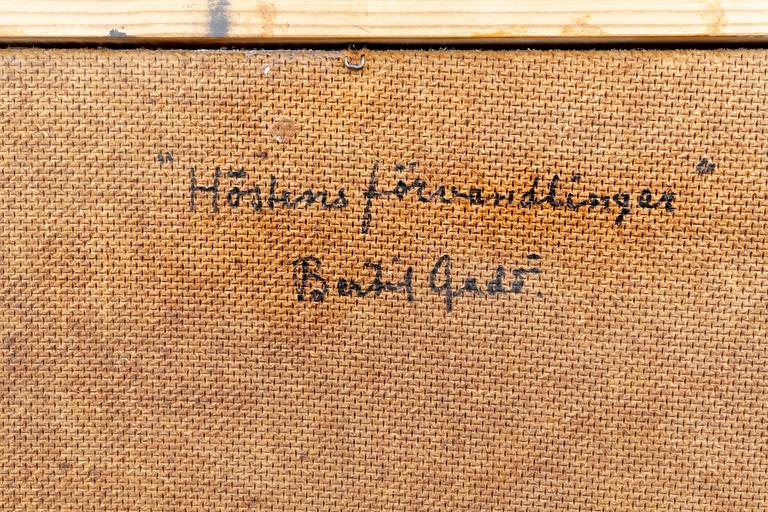 "Höstens förvandlingar"
Bertil Gadö.